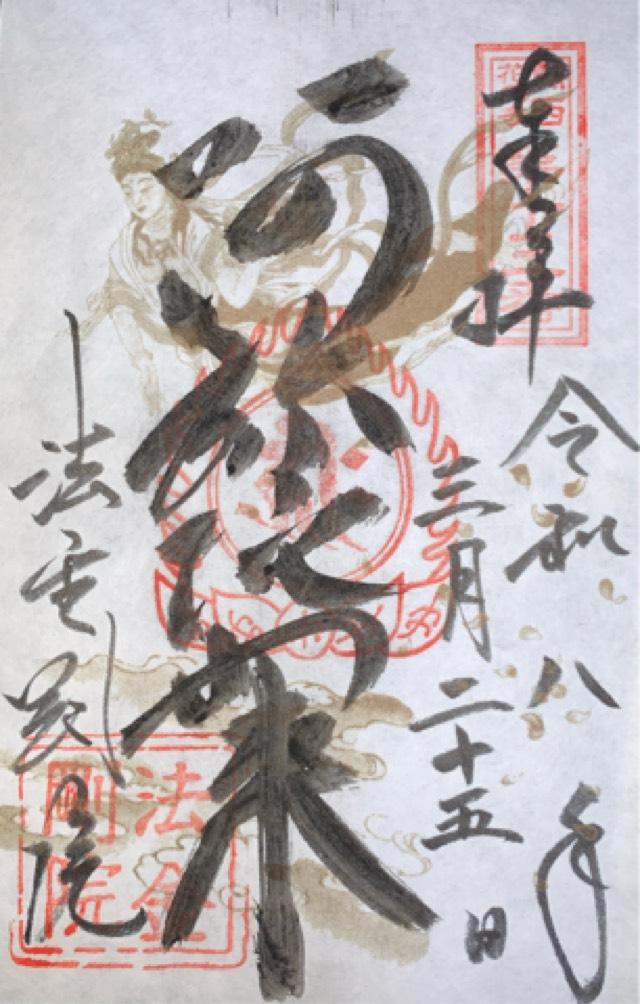 奉拝
令和八年
三月二十五日
阿弥陀如来
法金剛院
法金
剛院